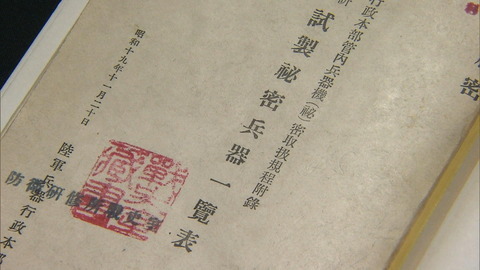 密
行政本部管內兵器機(祕)密取扱規程附錄
試製祕密兵器一覽表
昭和十九年十一月二十日
陸軍兵器行政本部
戰史室藏書
防衛研修所戦史室